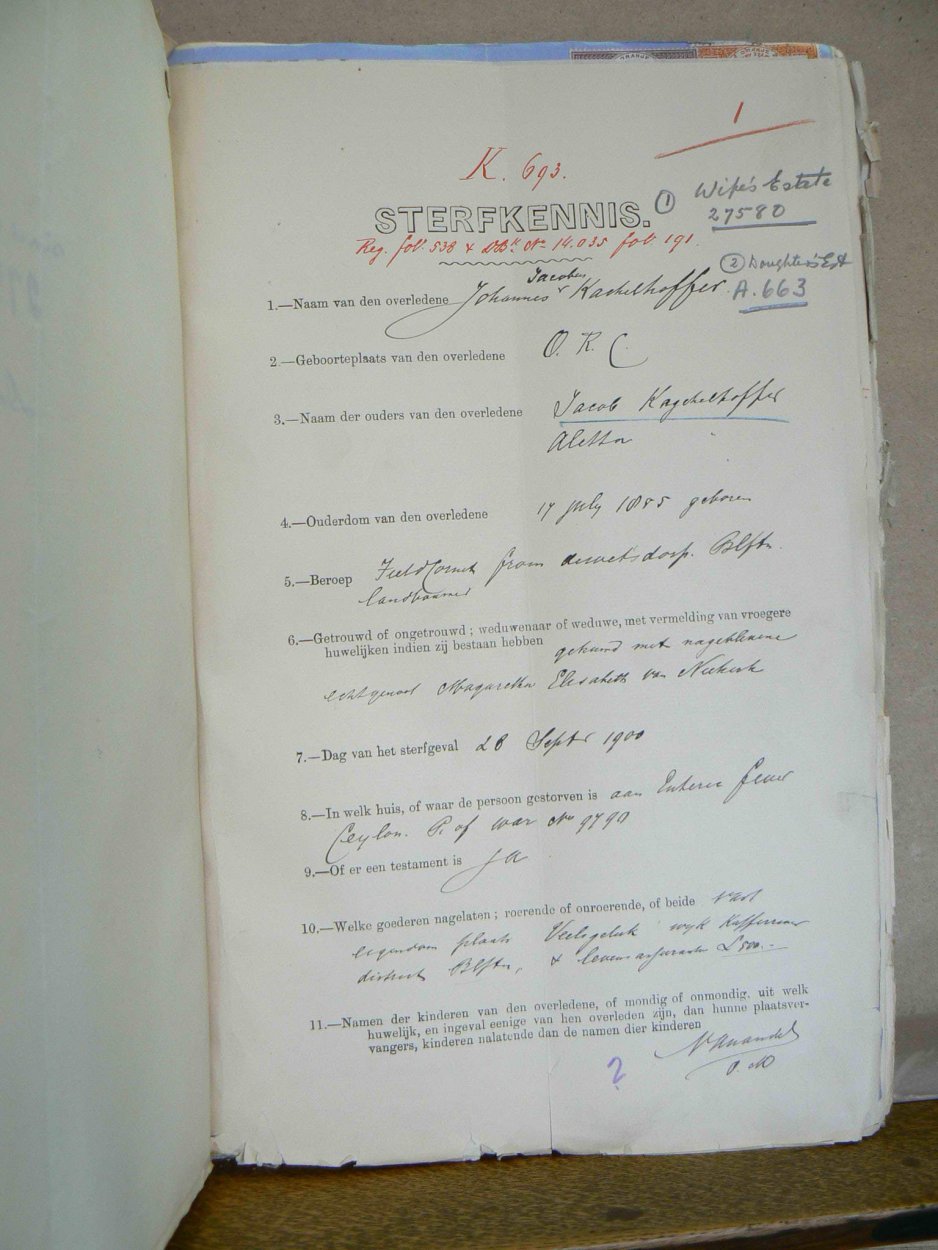 1
K. 693.
① Wife's Estate
27580
STERFKENNIS.
Reg. fol. 538 & No 14.035 fol. 191.
② Daughter's Est
A. 663
Jacobus
1.—Naam van den overledene Johannes Kachelhoffer
2.—Geboorteplaats van den overledene O. R. C.
3.—Naam der ouders van den overledene Jacob Kachelhoffer
Aletta
4.—Ouderdom van den overledene 17 July 1855 geboren
5.—Beroep Field Cornet from dewetsdorp. Blftn.
landbouwer
6.—Getrouwd of ongetrouwd; weduwenaar of weduwe, met vermelding van vroegere
huwelijken indien zij bestaan hebben gehuwd met nageblevene
echtgenoot Magaretha Elisabeth van Niekerk
7.—Dag van het sterfgeval 28 Septr 1900
8.—In welk huis, of waar de persoon gestorven is aan Enteric fever
Ceylon. P. of war No 9790
9.—Of er een testament is Ja
10.—Welke goederen nagelaten; roerende of onroerende, of beide vast
eigendom plaats Veelsgeluk wyk Kafferrivier
district Blftn, & levens assurantie £500.-
11.—Namen der kinderen van den overledene, of mondig of onmondig, uit welk
huwelijk, en ingeval eenige van hen overleden zijn, dan hunne plaatsver-
vangers, kinderen nalatende dan de namen dier kinderen
?